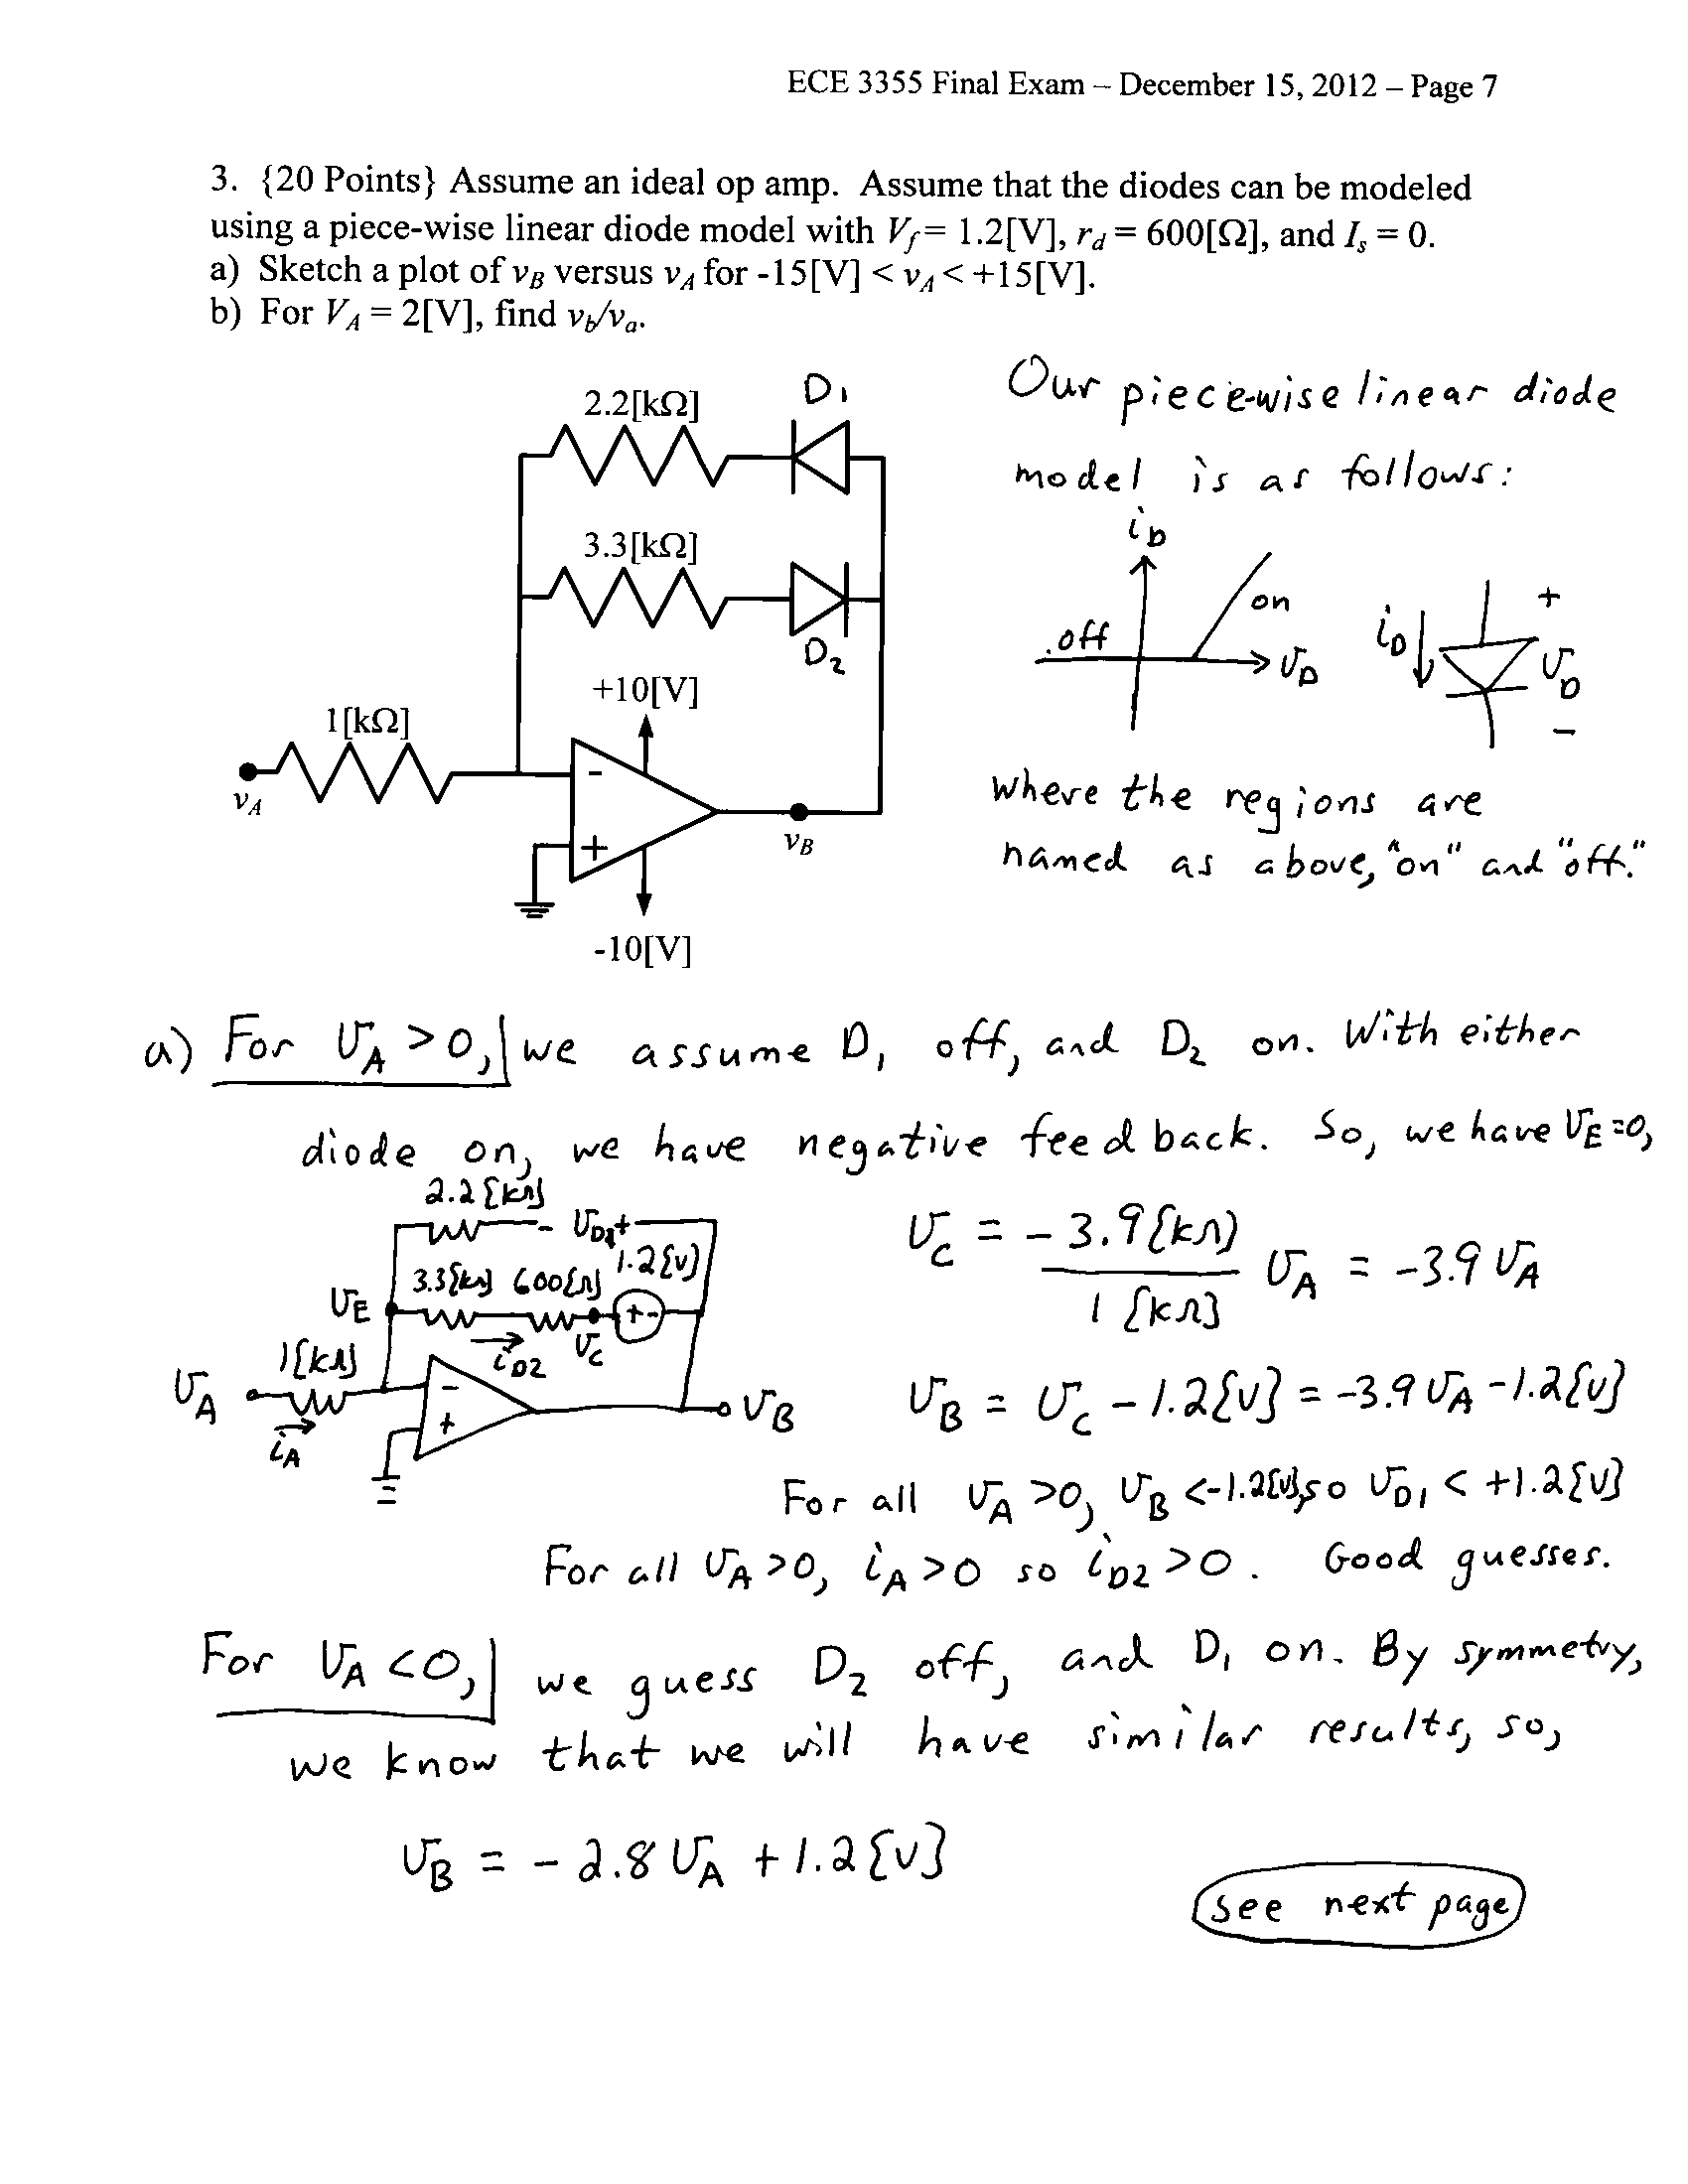 ECE 3355 Final Exam – December 15, 2012 – Page 7
3. {20 Points} Assume an ideal op amp. Assume that the diodes can be modeled
using a piece-wise linear diode model with Vf = 1.2[V], rd = 600[Ω], and Is = 0.
a) Sketch a plot of vB versus vA for -15[V] < vA < +15[V].
b) For VA = 2[V], find vb/va.
2.2[kΩ]
D1
3.3[kΩ]
D2
+10[V]
1[kΩ]
vA
-
+
vB
-10[V]
Our piece-wise linear diode
model is as follows:
iD
on
off
vD
iD
+
vD
-
where the regions are
named as above, "on" and "off."
a) For vA > 0, we assume D1 off, and D2 on. With either
diode on, we have negative feedback. So, we have vE = 0,
2.2[kΩ]
- vD1 +
3.3[kΩ] 600[Ω] 1.2[V]
vE
+ -
iD2
vC
1[kΩ]
vA
iA
-
+
vB
vC = -3.9[kΩ] / 1[kΩ] vA = -3.9 vA
vB = vC - 1.2[V] = -3.9 vA - 1.2[V]
For all vA > 0, vB < -1.2[V], so vD1 < +1.2[V]
For all vA > 0, iA > 0 so iD2 > 0. Good guesses.
For vA < 0, we guess D2 off, and D1 on. By symmetry,
we know that we will have similar results, so,
vB = -2.8 vA + 1.2[V]
see next page